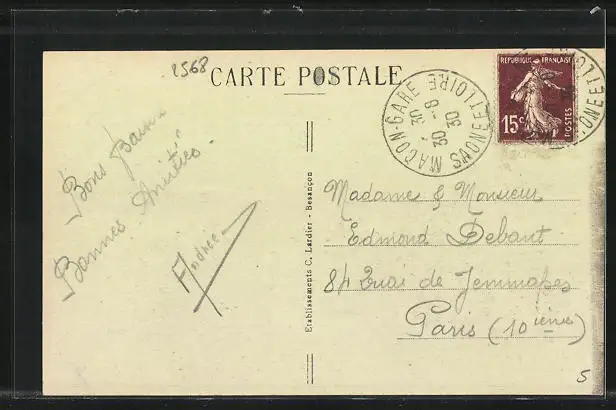 2568
CARTE POSTALE
REPUBLIQUE FRANÇAISE
15c
POSTES
MACON-GARE
SAONE ET LOIRE
30 -8
30
Bons Baisers
Bonnes Amitiés.
Andrée
Etablissements C. Lardier - Besançon
Madame & Monsieur
Edmond Debant
84 Quai de Jemmapes
Paris (10ième)
5